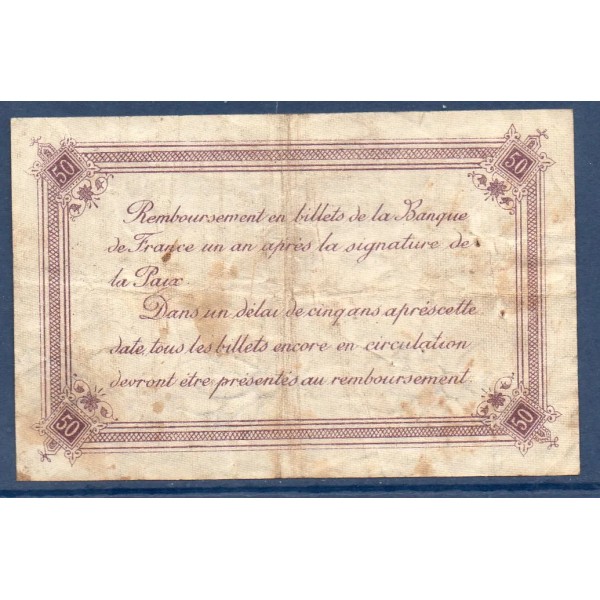 50 50
Remboursement en billets de la Banque
de France un an après la signature de
la Paix.
Dans un délai de cinq ans aprés cette
date, tous les billets encore en circulation
devront être présentés au remboursement.
50 50